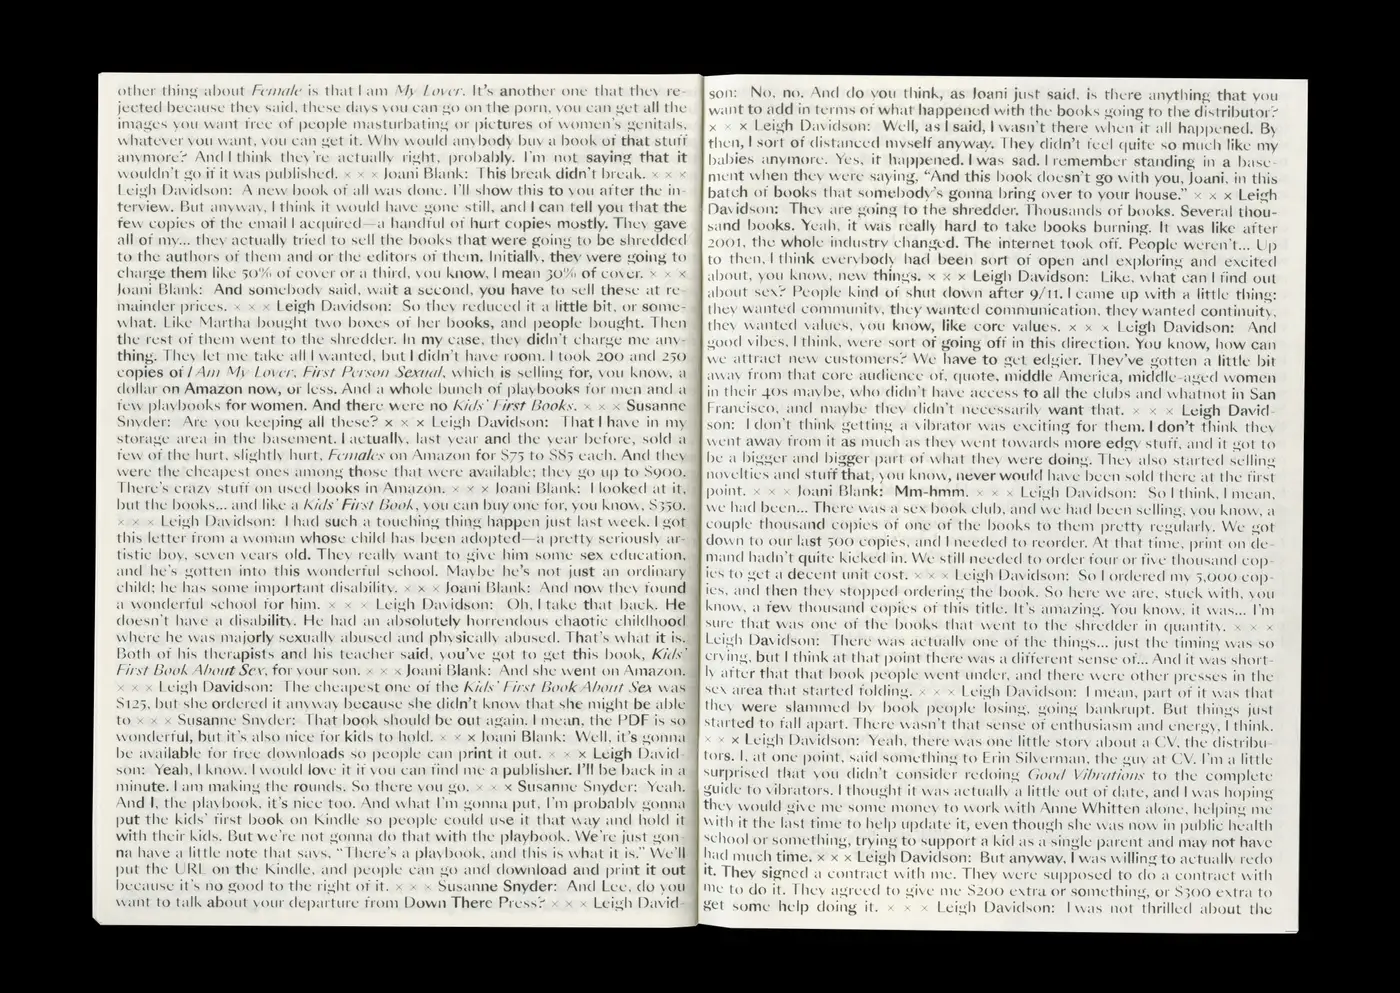 other thing about Female is that I am My Lover. It's another one that they re-
jected because they said, these days you can go on the porn, you can get all the
images you want free of people masturbating or pictures of women's genitals,
whatever you want, you can get it. Why would anybody buy a book of that stuff
anymore? And I think they're actually right, probably. I'm not saying that it
wouldn't go if it was published. × × × Joani Blank: This break didn't break. × × ×
Leigh Davidson: A new book of all was done. I'll show this to you after the in-
terview. But anyway, I think it would have gone still, and I can tell you that the
few copies of the email I acquired—a handful of hurt copies mostly. They gave
all of my... they actually tried to sell the books that were going to be shredded
to the authors of them and or the editors of them. Initially, they were going to
charge them like 50% of cover or a third, you know, I mean 30% of cover. × × ×
Joani Blank: And somebody said, wait a second, you have to sell these at re-
mainder prices. × × × Leigh Davidson: So they reduced it a little bit, or some-
what. Like Martha bought two boxes of her books, and people bought. Then
the rest of them went to the shredder. In my case, they didn't charge me any-
thing. They let me take all I wanted, but I didn't have room. I took 200 and 250
copies of I Am My Lover, First Person Sexual, which is selling for, you know, a
dollar on Amazon now, or less. And a whole bunch of playbooks for men and a
few playbooks for women. And there were no Kids' First Books. × × × Susanne
Snyder: Are you keeping all these? × × × Leigh Davidson: That I have in my
storage area in the basement. I actually, last year and the year before, sold a
few of the hurt, slightly hurt, Females on Amazon for $75 to $85 each. And they
were the cheapest ones among those that were available; they go up to $900.
There's crazy stuff on used books in Amazon. × × × Joani Blank: I looked at it,
but the books... and like a Kids' First Book, you can buy one for, you know, $350.
× × × Leigh Davidson: I had such a touching thing happen just last week. I got
this letter from a woman whose child has been adopted—a pretty seriously ar-
tistic boy, seven years old. They really want to give him some sex education,
and he's gotten into this wonderful school. Maybe he's not just an ordinary
child; he has some important disability. × × × Joani Blank: And now they found
a wonderful school for him. × × × Leigh Davidson: Oh, I take that back. He
doesn't have a disability. He had an absolutely horrendous chaotic childhood
where he was majorly sexually abused and physically abused. That's what it is.
Both of his therapists and his teacher said, you've got to get this book, Kids'
First Book About Sex, for your son. × × × Joani Blank: And she went on Amazon.
× × × Leigh Davidson: The cheapest one of the Kids' First Book About Sex was
$125, but she ordered it anyway because she didn't know that she might be able
to × × × Susanne Snyder: That book should be out again. I mean, the PDF is so
wonderful, but it's also nice for kids to hold. × × × Joani Blank: Well, it's gonna
be available for free downloads so people can print it out. × × × Leigh David-
son: Yeah, I know. I would love it if you can find me a publisher. I'll be back in a
minute. I am making the rounds. So there you go. × × × Susanne Snyder: Yeah.
And I, the playbook, it's nice too. And what I'm gonna put, I'm probably gonna
put the kids' first book on Kindle so people could use it that way and hold it
with their kids. But we're not gonna do that with the playbook. We're just gon-
na have a little note that says, “There's a playbook, and this is what it is.” We'll
put the URL on the Kindle, and people can go and download and print it out
because it's no good to the right of it. × × × Susanne Snyder: And Lee, do you
want to talk about your departure from Down There Press? × × × Leigh David-
son: No, no. And do you think, as Joani just said, is there anything that you
want to add in terms of what happened with the books going to the distributor?
× × × Leigh Davidson: Well, as I said, I wasn't there when it all happened. By
then, I sort of distanced myself anyway. They didn't feel quite so much like my
babies anymore. Yes, it happened. I was sad. I remember standing in a base-
ment when they were saying, “And this book doesn't go with you, Joani, in this
batch of books that somebody's gonna bring over to your house.” × × × Leigh
Davidson: They are going to the shredder. Thousands of books. Several thou-
sand books. Yeah, it was really hard to take books burning. It was like after
2001, the whole industry changed. The internet took off. People weren't... Up
to then, I think everybody had been sort of open and exploring and excited
about, you know, new things. × × × Leigh Davidson: Like, what can I find out
about sex? People kind of shut down after 9/11. I came up with a little thing:
they wanted community, they wanted communication, they wanted continuity,
they wanted values, you know, like core values. × × × Leigh Davidson: And
good vibes, I think, were sort of going off in this direction. You know, how can
we attract new customers? We have to get edgier. They've gotten a little bit
away from that core audience of, quote, middle America, middle-aged women
in their 40s maybe, who didn't have access to all the clubs and whatnot in San
Francisco, and maybe they didn't necessarily want that. × × × Leigh David-
son: I don't think getting a vibrator was exciting for them. I don't think they
went away from it as much as they went towards more edgy stuff, and it got to
be a bigger and bigger part of what they were doing. They also started selling
novelties and stuff that, you know, never would have been sold there at the first
point. × × × Joani Blank: Mm-hmm. × × × Leigh Davidson: So I think, I mean,
we had been... There was a sex book club, and we had been selling, you know, a
couple thousand copies of one of the books to them pretty regularly. We got
down to our last 500 copies, and I needed to reorder. At that time, print on de-
mand hadn't quite kicked in. We still needed to order four or five thousand cop-
ies to get a decent unit cost. × × × Leigh Davidson: So I ordered my 5,000 cop-
ies, and then they stopped ordering the book. So here we are, stuck with, you
know, a few thousand copies of this title. It's amazing. You know, it was... I'm
sure that was one of the books that went to the shredder in quantity. × × ×
Leigh Davidson: There was actually one of the things... just the timing was so
crying, but I think at that point there was a different sense of... And it was short-
ly after that that book people went under, and there were other presses in the
sex area that started folding. × × × Leigh Davidson: I mean, part of it was that
they were slammed by book people losing, going bankrupt. But things just
started to fall apart. There wasn't that sense of enthusiasm and energy, I think.
× × × Leigh Davidson: Yeah, there was one little story about a CV, the distribu-
tors. I, at one point, said something to Erin Silverman, the guy at CV. I'm a little
surprised that you didn't consider redoing Good Vibrations to the complete
guide to vibrators. I thought it was actually a little out of date, and I was hoping
they would give me some money to work with Anne Whitten alone, helping me
with it the last time to help update it, even though she was now in public health
school or something, trying to support a kid as a single parent and may not have
had much time. × × × Leigh Davidson: But anyway, I was willing to actually redo
it. They signed a contract with me. They were supposed to do a contract with
me to do it. They agreed to give me $200 extra or something, or $300 extra to
get some help doing it. × × × Leigh Davidson: I was not thrilled about the